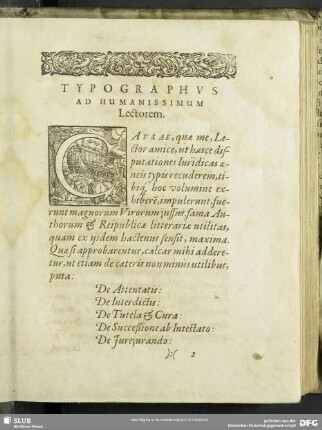 TYPOGRAPHVS
AD HUMANISSIMUM
Lectorem.
CAVSAE, quæ me, Le-
ctor amice, ut hasce dis-
putationes Iuridicas æ-
neis typis recuderem, ti-
biq́; hoc volumine ex-
hiberē, impulerunt, fue-
runt magnorum Virorum jussus, fama Au-
thorum & Reipublicæ litterariæ utilitas,
quam ex ijsdem hactenus sensit, maxima.
Quæ si approbarentur, calcar mihi addere-
tur, ut etiam de cæteris non minus utilibus,
puta:
De Attentatis:
De Interdictis:
De Tutela & Cura:
De Successione ab Intestato:
De Jurejurando:
):( 2
SLUB
Wir führen Wissen.
gefördert von der
Deutschen Forschungsgemeinschaft
DFG